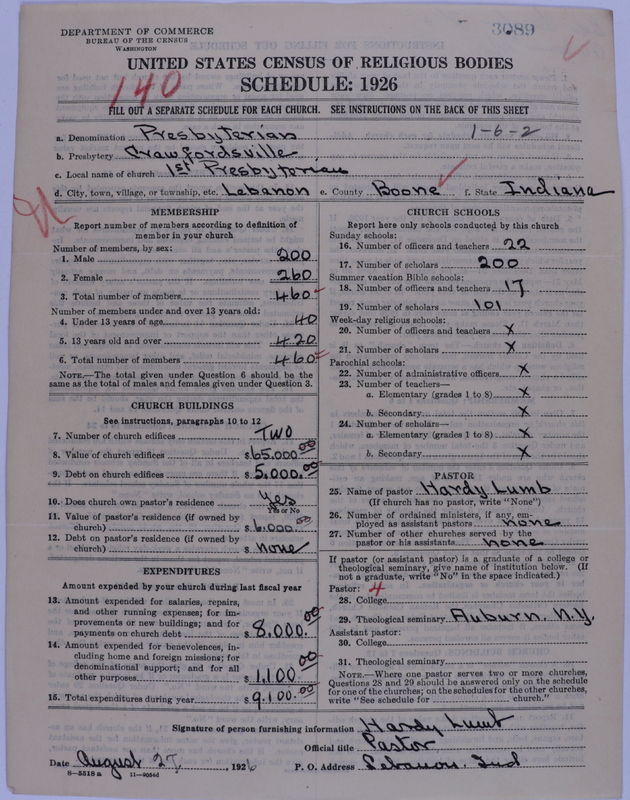 DEPARTMENT OF COMMERCE
BUREAU OF THE CENSUS
WASHINGTON
3089
UNITED STATES CENSUS OF RELIGIOUS BODIES
SCHEDULE: 1926
140
FILL OUT A SEPARATE SCHEDULE FOR EACH CHURCH. SEE INSTRUCTIONS ON THE BACK OF THIS SHEET
a. Denomination Presbyterian 1-6-2
b. Presbytery Crawfordsville
c. Local name of church 1st Presbyterian
d. City, town, village, or township, etc. Lebanon e. County Boone f. State Indiana
MEMBERSHIP
Report number of members according to definition of
member in your church
Number of members, by sex:
1. Male 200
2. Female 260
3. Total number of members 460
Number of members under and over 13 years old:
4. Under 13 years of age 40
5. 13 years old and over 420
6. Total number of members 460
NOTE.—The total given under Question 6 should be
same as the total of males and females given under Question 3.
CHURCH BUILDINGS
See instructions, paragraphs 10 to 12
7. Number of church edifices Two
8. Value of church edifices $65.000.00
9. Debt on church edifices $5,000.00
10. Does church own pastor's residence Yes
Yes or No
11. Value of pastor's residence (if owned by
church) $6.000.00
12. Debt on pastor's residence (if owned by
church) $none
EXPENDITURES
Amount expended by your church during last fiscal year
13. Amount expended for salaries, repairs,
and other running expenses; for im-
provements or new buildings; and for
payments on church debt $8,000.00
14. Amount expended for benevolences, in-
cluding home and foreign missions; for
denominational support; and for all
other purposes $1,100.00
15. Total expenditures during year $9,100.00
CHURCH SCHOOLS
Report here only schools conducted by this church
Sunday schools:
16. Number of officers and teachers 22
17. Number of scholars 200
Summer vacation Bible schools:
18. Number of officers and teachers 17
19. Number of scholars 101
Week-day religious schools:
20. Number of officers and teachers x
21. Number of scholars x
Parochial schools:
22. Number of administrative officers x
23. Number of teachers—
a. Elementary (grades 1 to 8) x
b. Secondary x
24. Number of scholars—
a. Elementary (grades 1 to 8) x
b. Secondary x
PASTOR
25. Name of pastor Hardy Lumb
(If church has no pastor, write "None")
26. Number of ordained ministers, if any, em-
ployed as assistant pastors none
27. Number of other churches served by the
pastor or his assistants none
If pastor (or assistant pastor) is a graduate of a college or
theological seminary, give name of institution below. (If
not a graduate, write "No" in the space indicated.)
Pastor: 4
28. College
29. Theological seminary Auburn. N.Y.
Assistant pastor:
30. College
31. Theological seminary
NOTE.—Where one pastor serves two or more churches,
Questions 28 and 29 should be answered only on the schedule
for one of the churches; on the schedules for the other churches,
write "See schedule for church."
Signature of person furnishing information Hardy Lumb
Official title Pastor
Date August 27, 1926 P. O. Address Lebanon. Ind
8—5518 a 11—9054d